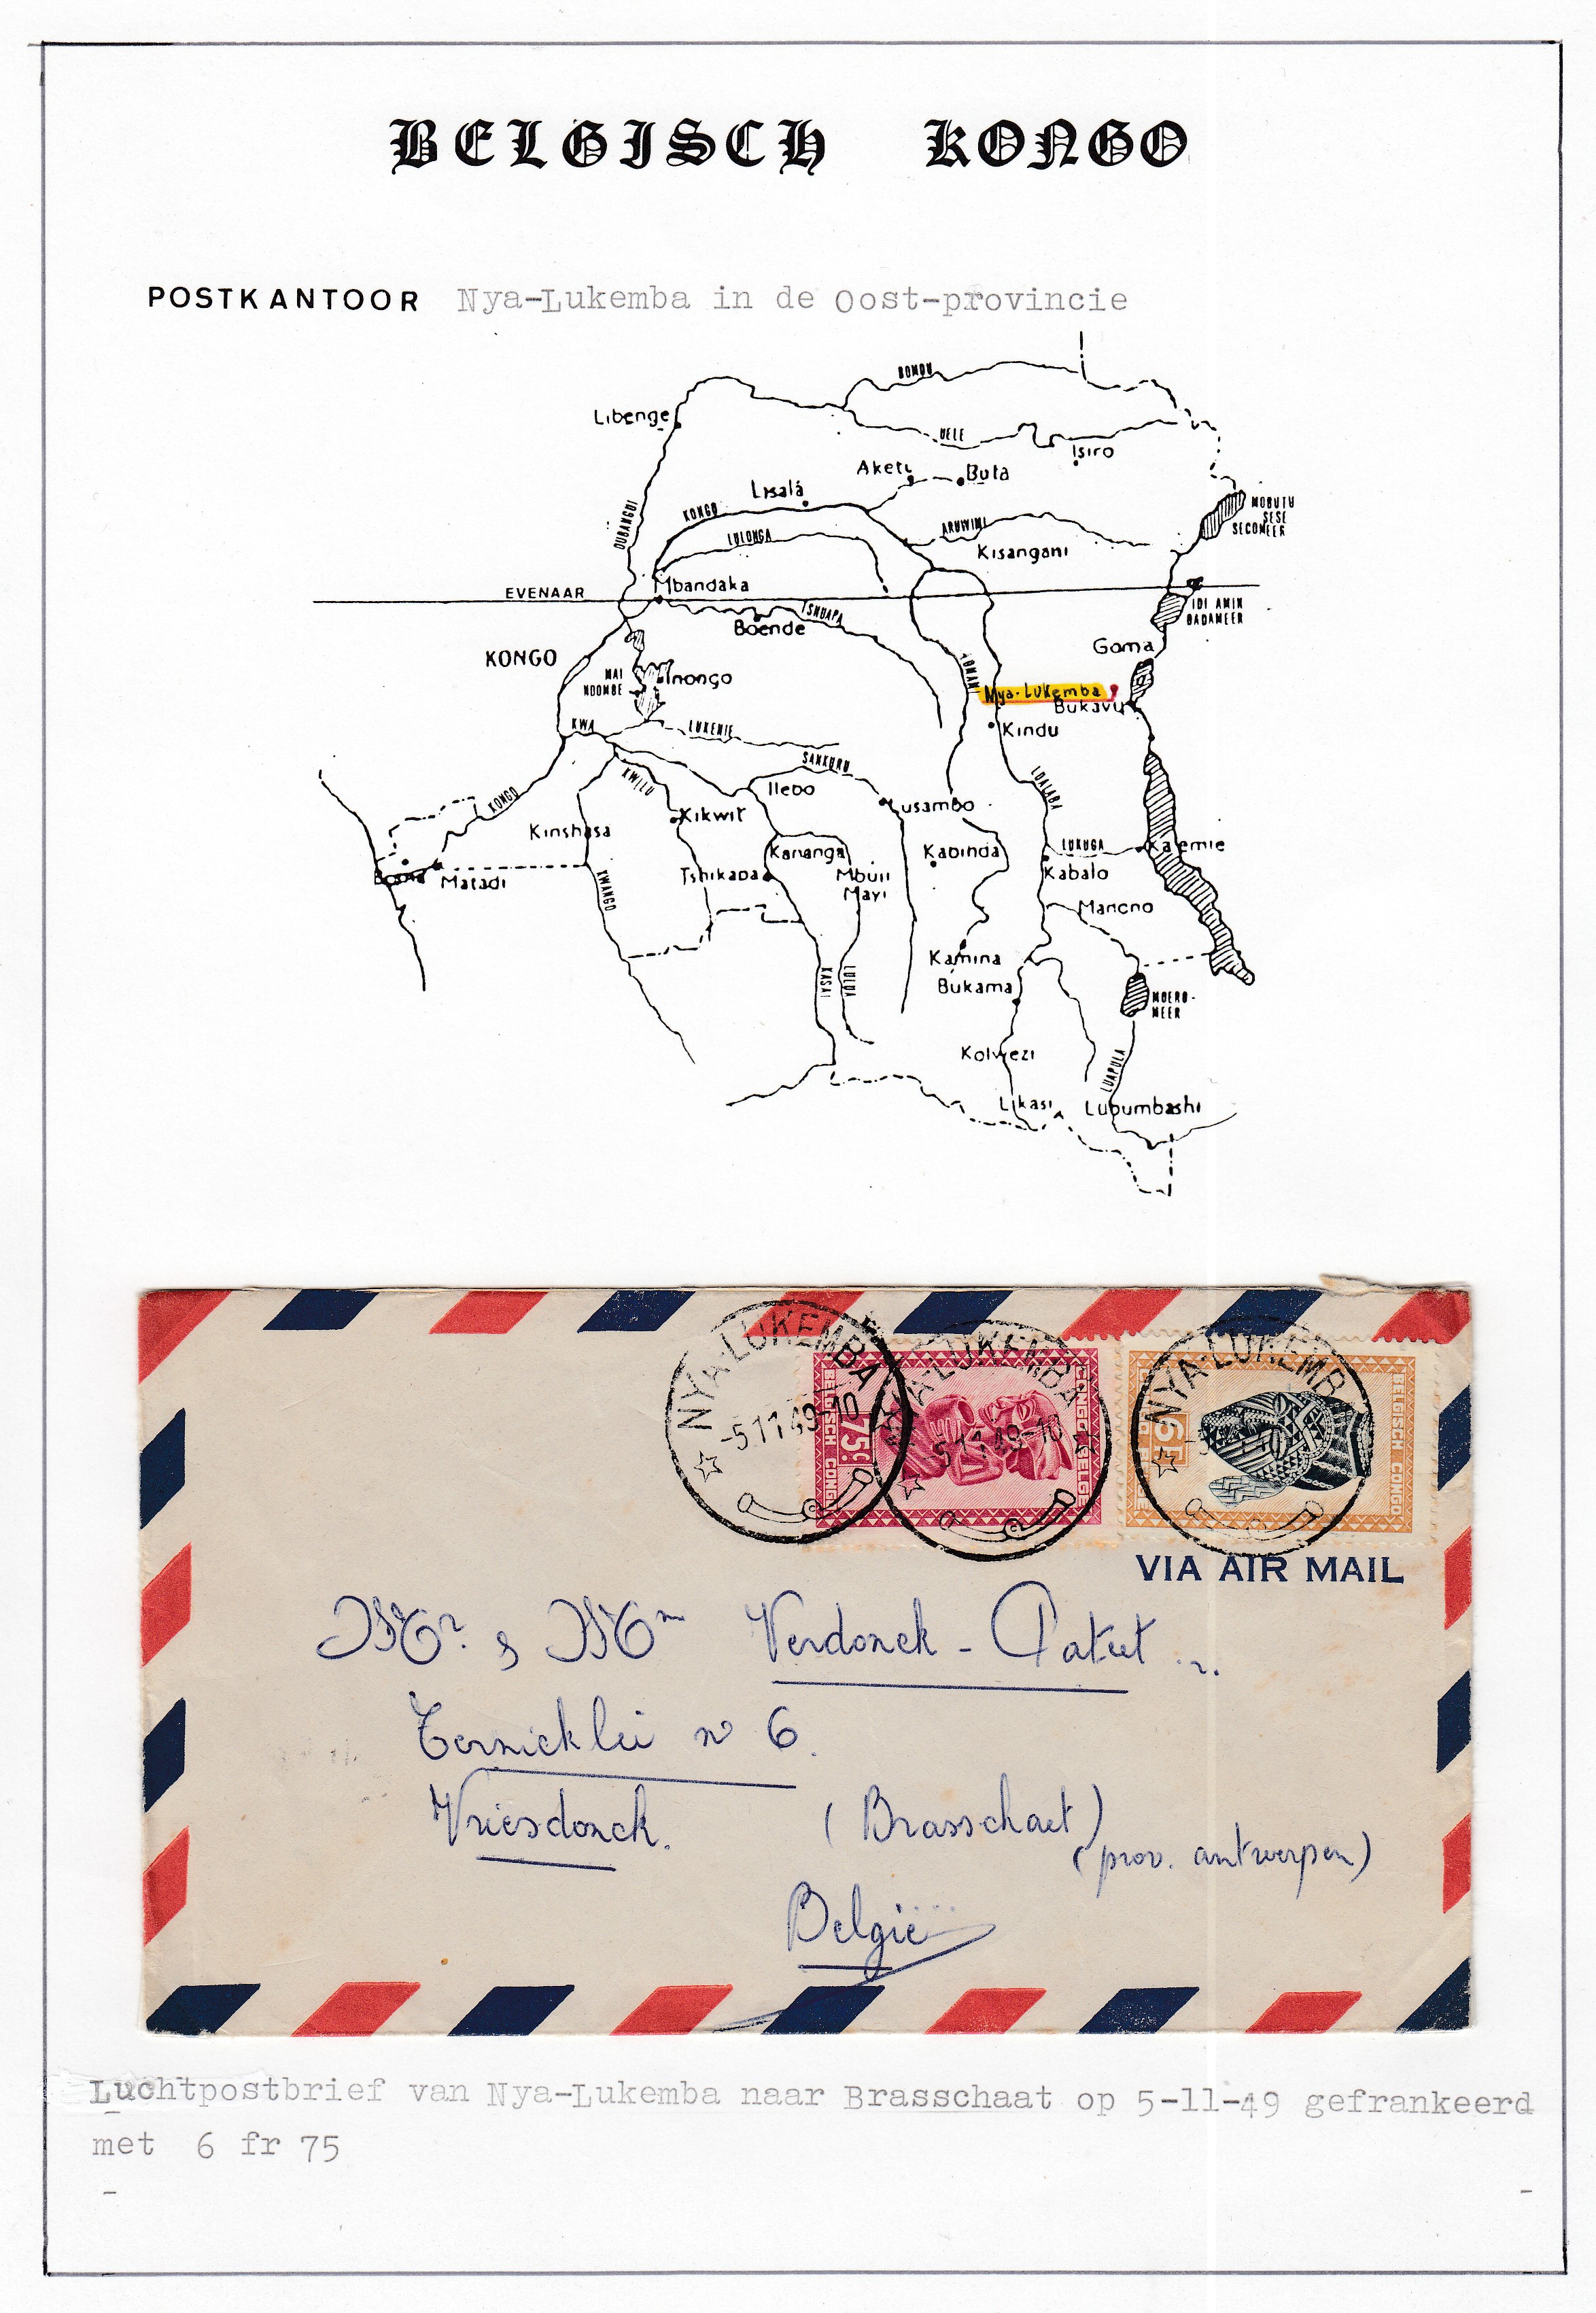 BELGISCH KONGO
POSTKANTOOR Nya-Lukemba in de Oost-provincie
BOMOU
Libenge
UELE
Isiro
Aketi
Buta
Lisala
MOBUTU
SESE
SECOMEER
OUBANGUI
KONGO
LULONGA
ARUWIMI
Kisangani
Mbandaka
EVENAAR
TSHUAPA
IDI AMIN
DADAMEER
Boende
Goma
KONGO
LOMAMI
MAI
NDOMBE
Inongo
Nya-Lukemba
Bukavu
KWA
LUKENIE
Kindu
SANKURU
KWILU
Ilebo
LUALABA
KONGO
Lusambo
Kikwit
Kinshasa
Kananga
Kabinda
LUKUGA
Kalemie
Boma
Matadi
KWANGO
Tshikapa
Mbuji
Mayi
Kabalo
Manono
Kamina
KASAI
LULUA
Bukama
MOERO-
MEER
Kolwezi
LUAPULA
Likasi
Lubumbashi
NYA-LUKEMBA
-5 11 49-10
NYA-LUKEMBA
-5 11 49-10
NYA-LUKEMBA
BELGISCH CONGO
75c
CONGO BELGE
6F
BELGISCH CONGO
VIA AIR MAIL
Mr & Mm Verdonck - Patut
Ternicklei no 6.
Vriesdonck. (Brasschaet)
(prov. antwerpen)
België
Luchtpostbrief van Nya-Lukemba naar Brasschaat op 5-11-49 gefrankeerd
met 6 fr 75